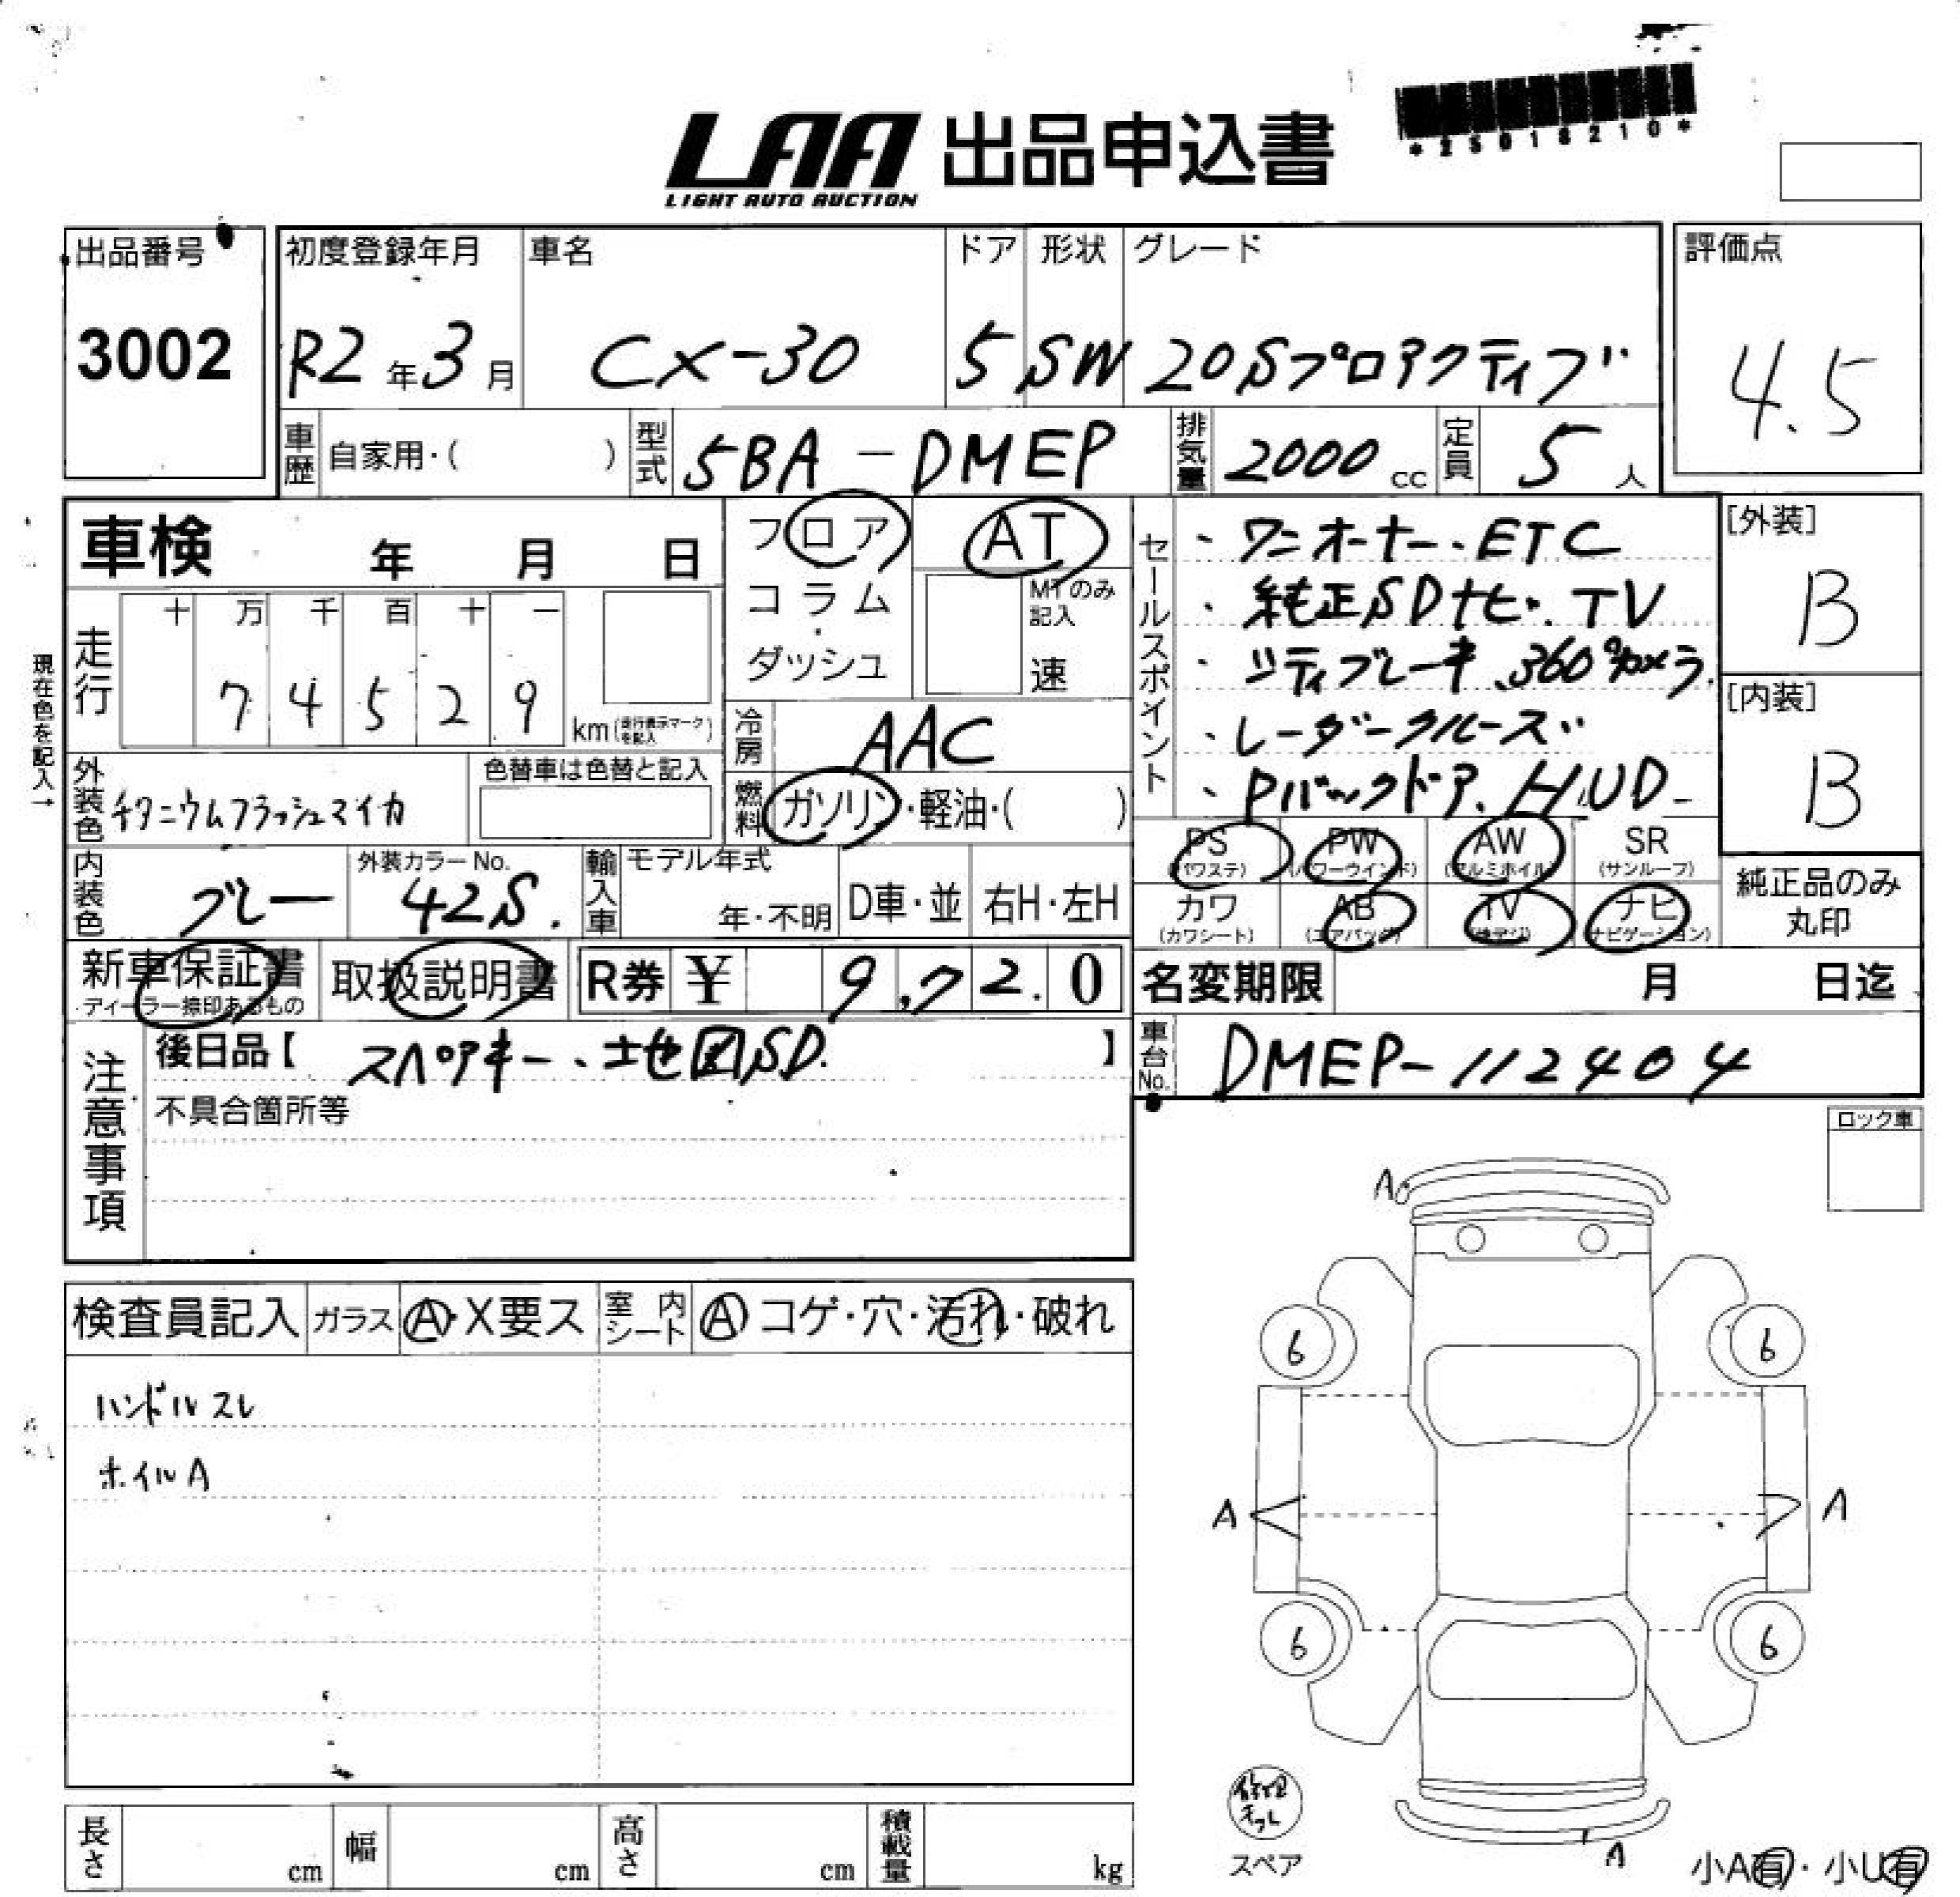 LAA 出品申込書
LIGHT AUTO AUCTION
*25016210*
出品番号
3002
初度登録年月
R2年3月
車名
CX-30
ドア
5
形状
SW
グレード
20Sプロアクティブ
評価点
4.5
車歴 自家用・( )
型式 5BA-DMEP
排気量 2000cc
定員 5人
車検 年 月 日
フロア
コラム
・
ダッシュ
AT
MTのみ記入
速
セールスポイント
・ワンオーナー・ETC
・純正SDナビ・TV
・シティブレーキ、360°カメラ
・レーダークルーズ
・Pバックドア、HUD
[外装]
B
[内装]
B
現在色を記入→
走行
十 万 千 百 十 一
7 4 5 2 9
km(走行表示マークを記入)
冷房 AAC
外装色 チタニウムフラッシュマイカ
色替車は色替と記入
燃料 ガソリン・軽油・( )
PS (パワステ)
PW (パワーウインド)
AW (アルミホイル)
SR (サンルーフ)
カワ (カワシート)
AB (エアバッグ)
TV
ナビ (ナビゲーション)
純正品のみ
丸印
内装色 グレー
外装カラーNo.
42S.
輸入車
モデル年式
年・不明
D車・並
右H・左H
新車保証書
ディーラー捺印あるもの
取扱説明書
R券 ¥ 9,72.0
名変期限 月 日迄
注意事項
後日品【 スペアキー、地図SD. 】
不具合箇所等
車台No. DMEP-112404
ロック車
検査員記入
ガラス A・X要ス
室内シート A コゲ・穴・汚れ・破れ
ハンドルスレ
ホイルA
A
6 6
A A
6 6
修理キット
スペア
A
小A有・小U有
長さ cm
幅 cm
高さ cm
積載量 kg